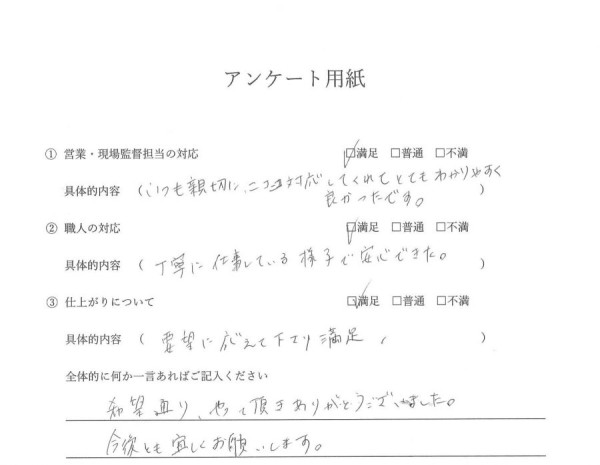 アンケート用紙
① 営業・現場監督担当の対応 ☑満足 □普通 □不満
具体的内容 (いつも親切に、ニコニコ対応してくれてとてもわかりやすく
良かったです。)
② 職人の対応 ☑満足 □普通 □不満
具体的内容 ( 丁寧に仕事している様子で安心できた。 )
③ 仕上がりについて ☑満足 □普通 □不満
具体的内容 ( 要望に応えて下さり満足、 )
全体的に何か一言あればご記入ください
希望通り、やって頂きありがとうございました。
今後とも宜しくお願いします。